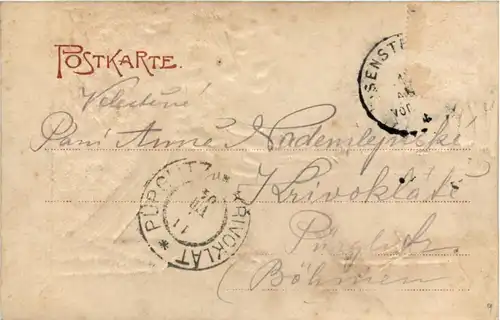 POSTKARTE.
Velectěné
Paní Anně Nademlejnské
Křivoklát
Pürglitz
(Böhmen
PÜRGLITZ * KŘIVOKLÁT *
11